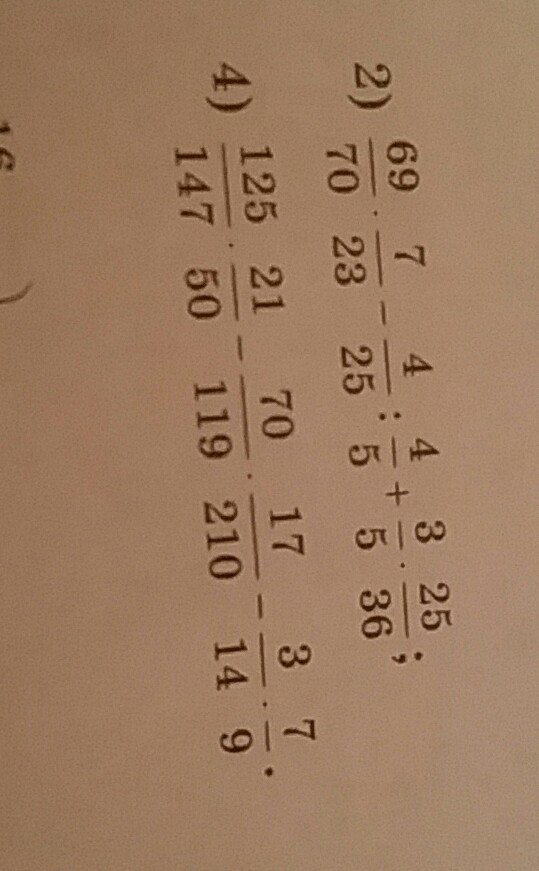 2) 69/70 · 7/23 − 4/25 : 4/5 + 3/5 · 25/36;
4) 125/147 · 21/50 − 70/119 · 17/210 − 3/14 · 7/9.
16 )